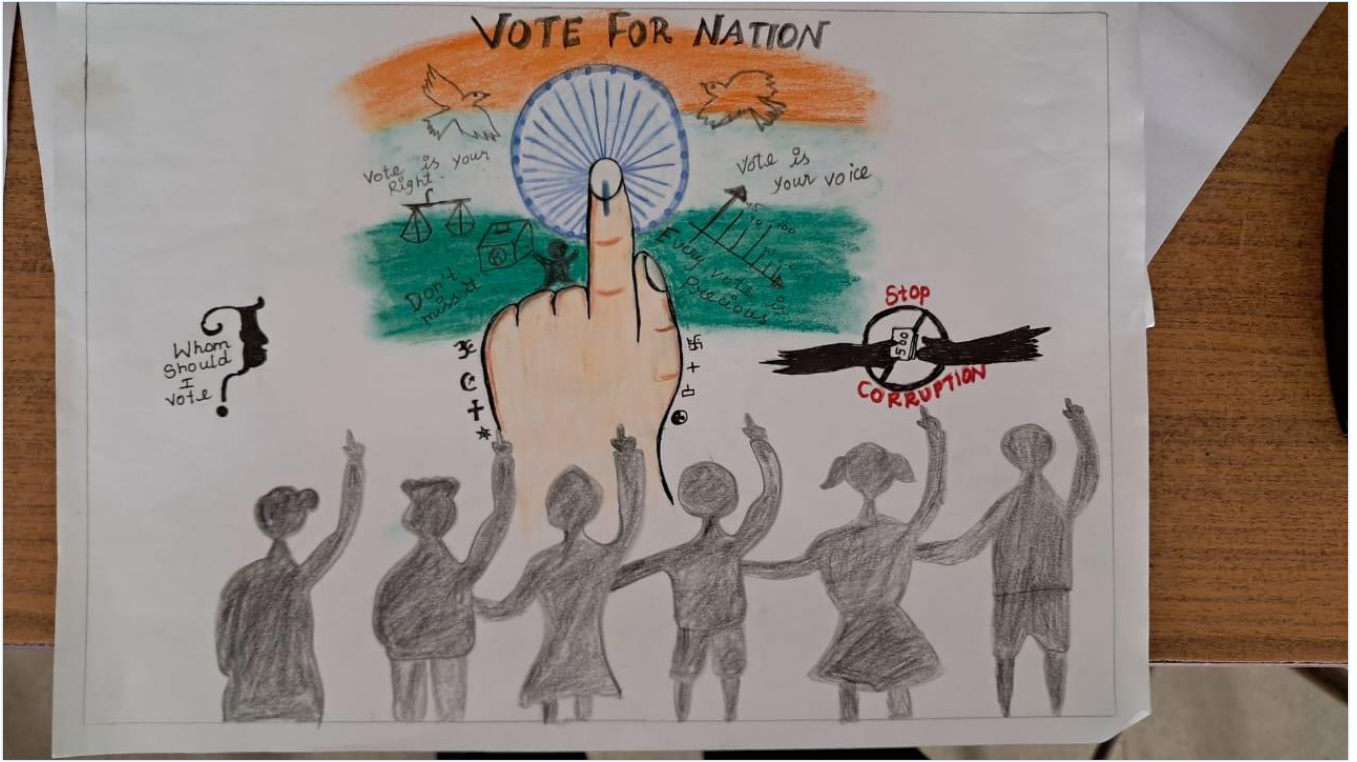 VOTE FOR NATION
Vote is your
Right-
Vote is
your voice
Don't
miss it
Every vote is
Precious
Whom
Should
I
vote
Stop
500
CORRUPTION